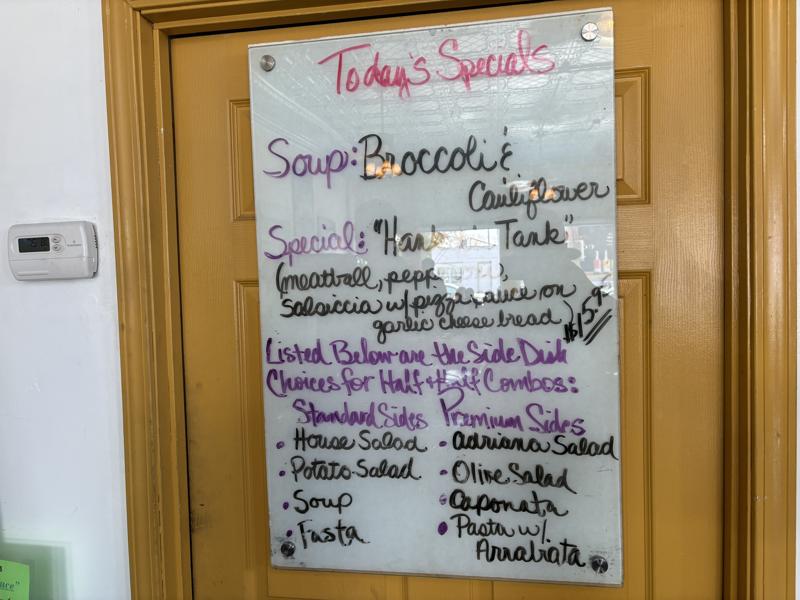 Today's Specials
Soup: Broccoli &
Cauliflower
Special: "Hank Tank"
(meatball,
Salsiccia w/ pizza sauce on
garlic cheese bread)
$15.9
Listed Below are the Side Dish
Choices for Half & Half Combos:
Standard Sides Premium Sides
• House Salad - Adriana Salad
• Potato Salad - Olive Salad
• Soup • Caponata
• Pasta • Pasta w/
Arrabiata